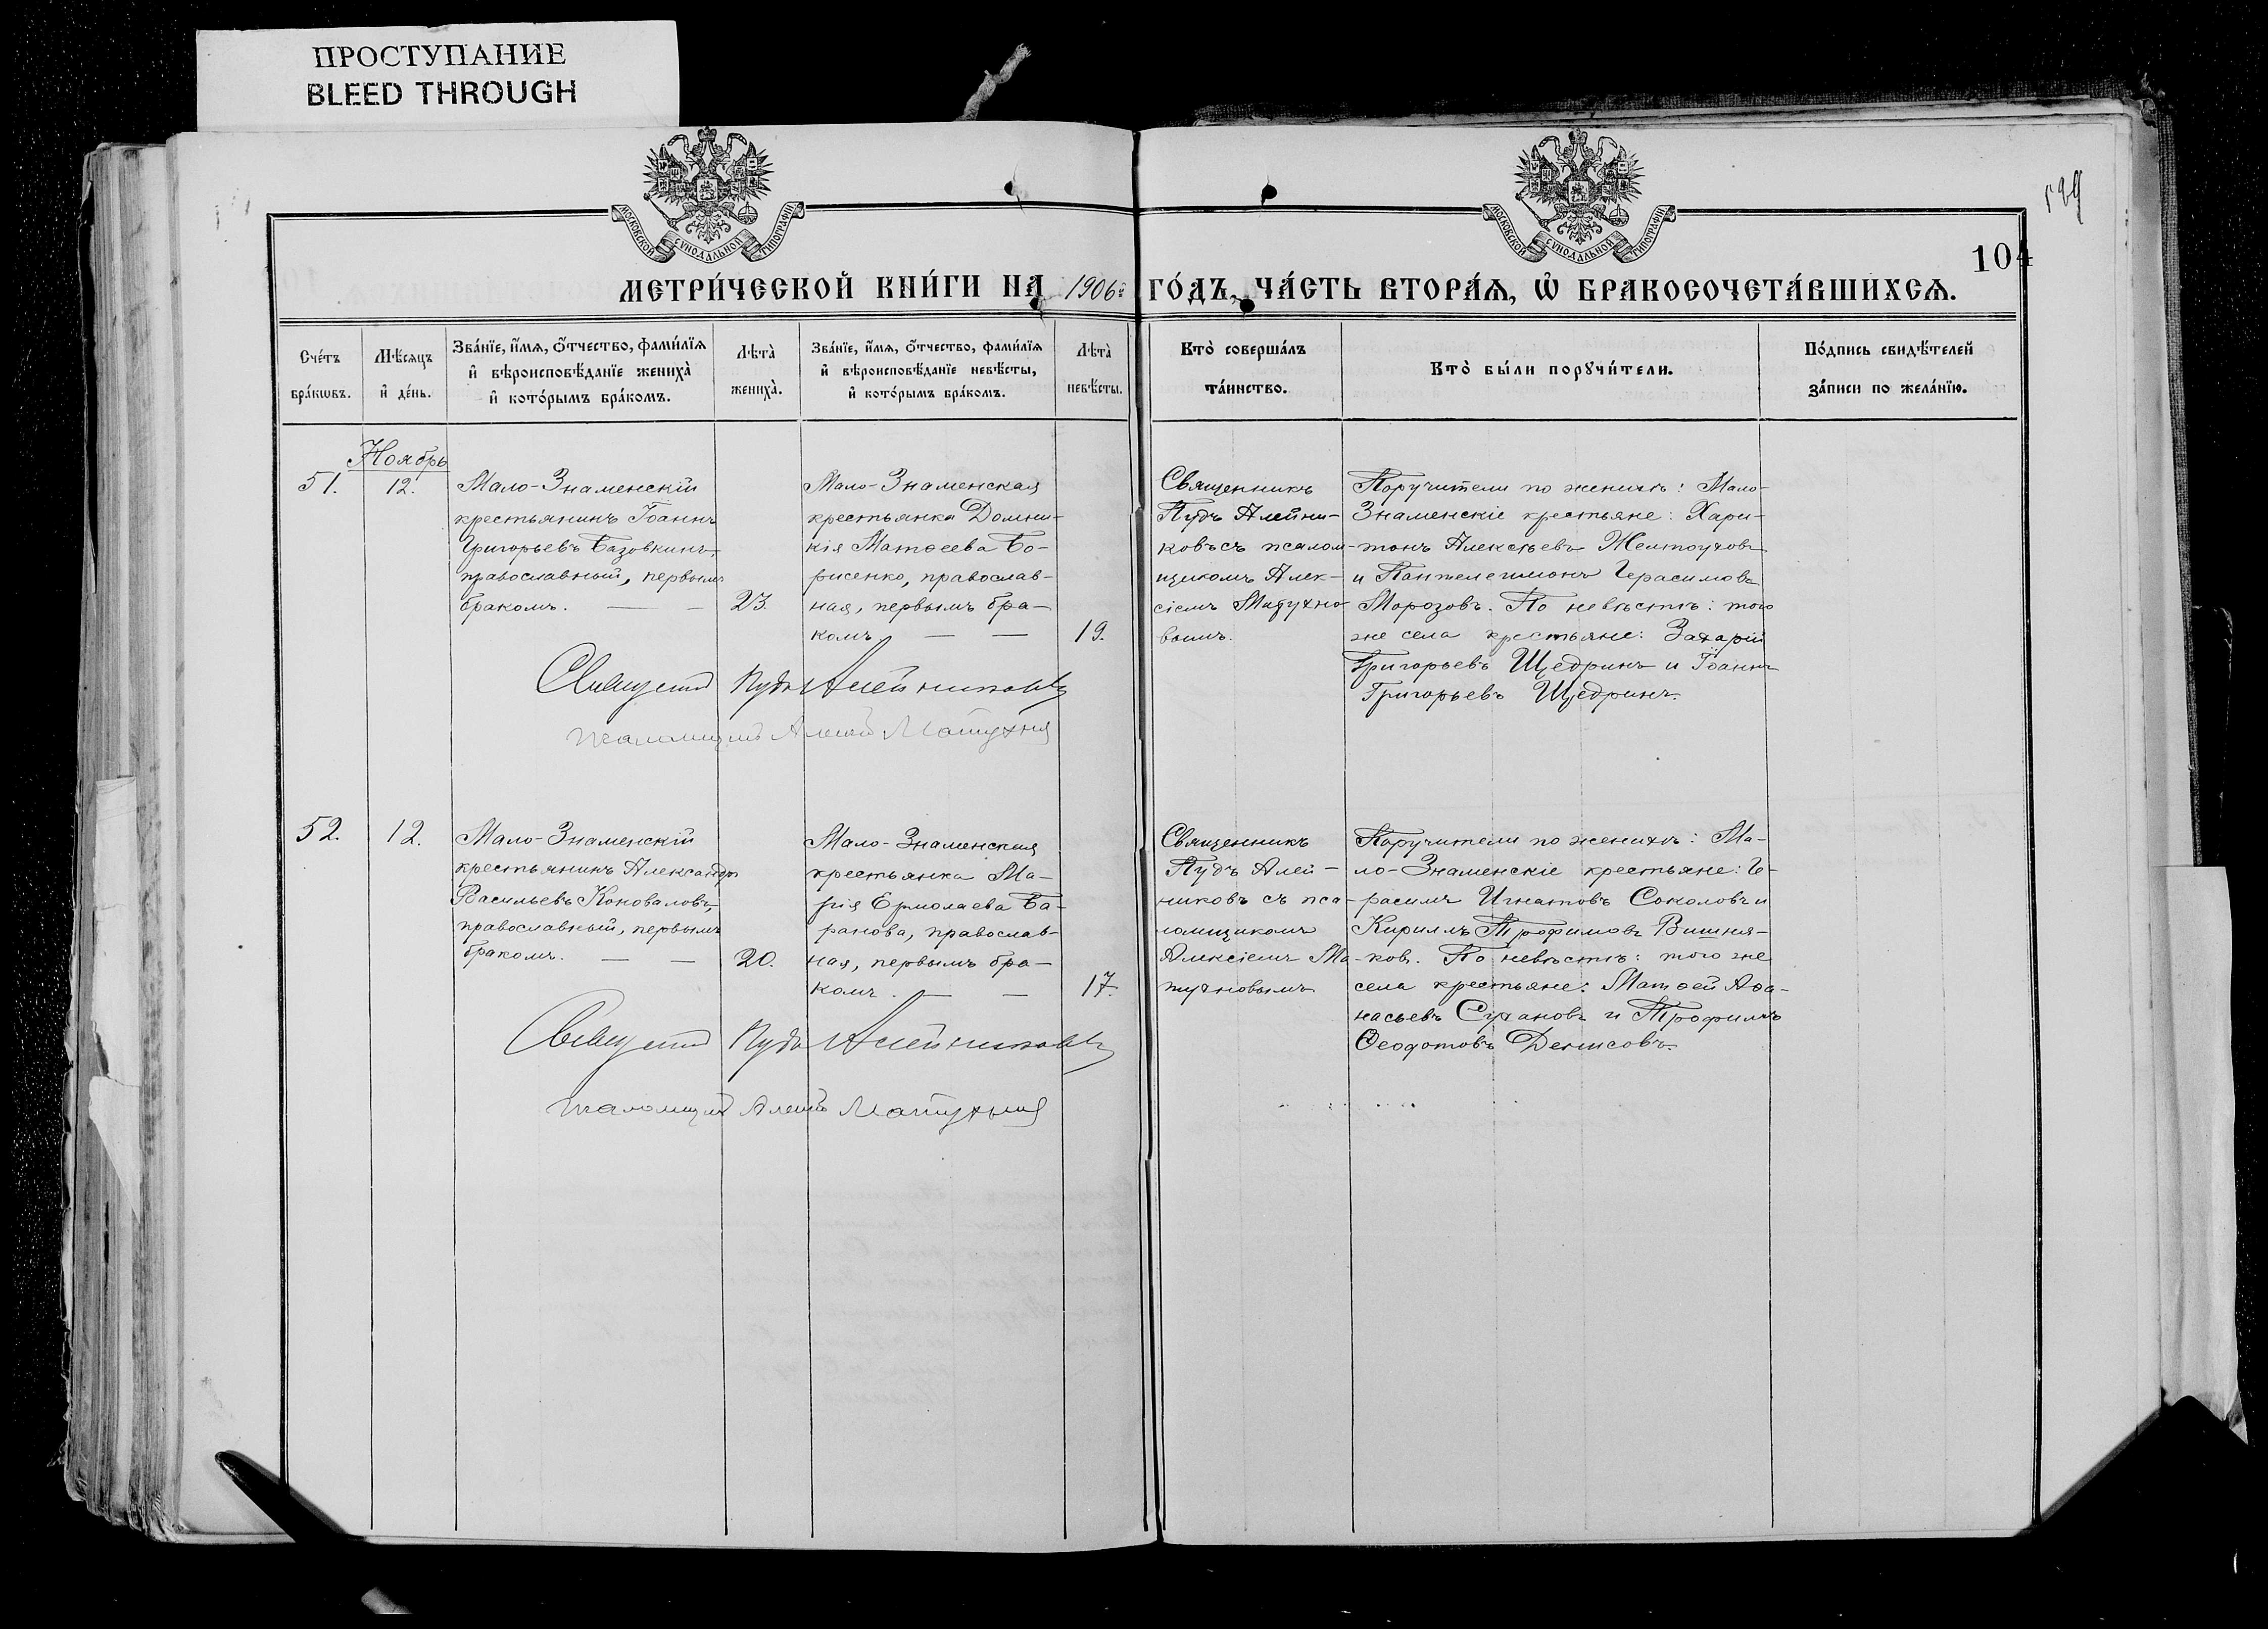 ПРОСТУПАНИЕ
BLEED THROUGH
МОСКОВСКОЙ СУНОДАЛЬНОЙ ТИПОГРАФІИ
МОСКОВСКОЙ СУНОДАЛЬНОЙ ТИПОГРАФІИ
104
МЕТРИ́ЧЕСКОЙ КНИ́ГИ НА 1906й ГО́ДЪ, ЧА́СТЬ ВТОРА́Ѧ, Ѡ҆ БРАКОСОЧЕТА́ВШИХСѦ.
Сче́тъ
бра́кѡвъ.
Мѣ́сѧцъ
и҆ де́нь.
Зва́нїе, и҆́мѧ, ѻ҆́тчество, фами́лїѧ
и҆ вѣроисповѣ́данїе жениха̀
и҆ кото́рымъ бра́комъ.
Лѣта̀
жениха̀.
Зва́нїе, и҆́мѧ, ѻ҆́тчество, фами́лїѧ
и҆ вѣроисповѣ́данїе невѣ́сты,
и҆ кото́рымъ бра́комъ.
Лѣта̀
невѣ́сты.
Кто̀ соверша́лъ
та́инство.
Кто̀ бы́ли порꙋчи́тели.
По́дпись свидѣ́телей
за́писи по жела́нїю.
Ноябрь
51.
12.
Мало-Знаменскій
крестьянинъ Іоаннъ
Григорьевъ Базовкинъ,
православный, первымъ
бракомъ. — —
23.
Мало-Знаменская
крестьянка Домни-
кія Матѳеева Бо-
рисенко, православ-
ная, первымъ бра-
комъ. — —
19.
Священникъ
Пудъ Алейни-
ковъ съ псалом-
щикомъ Алек-
сіемъ Матухно-
вымъ.
Поручители по женихѣ: Мало-
Знаменскіе крестьяне: Хари-
тонъ Алексѣевъ Желтоуховъ
и Пантелеимонъ Герасимовъ
Морозовъ. По невѣстѣ: того
же села крестьяне: Захарій
Григорьевъ Щедринъ и Іоаннъ
Григорьевъ Щедринъ.
Священникъ Пудъ Алейниковъ
псаломщикъ Алексій Матухновъ
52.
12.
Мало-Знаменскій
крестьянинъ Александръ
Васильевъ Коноваловъ,
православный, первымъ
бракомъ. — —
20.
Мало-Знаменская
крестьянка Ма-
рія Ермолаева Ба-
ранова, православ-
ная, первымъ бра-
комъ. — —
17.
Священникъ
Пудъ Алей-
никовъ съ пса-
ломщикомъ
Алексіемъ Ма-
тухновымъ.
Поручители по женихѣ: Ма-
ло-Знаменскіе крестьяне: Ге-
расимъ Игнатовъ Соколовъ и
Кириллъ Трофимовъ Вишня-
ковъ. По невѣстѣ: того же
села крестьяне: Матѳей Аѳа-
насьевъ Сухановъ и Трофимъ
Ѳеодотовъ Денисовъ.
Священникъ Пудъ Алейниковъ
псаломщикъ Алексій Матухновъ